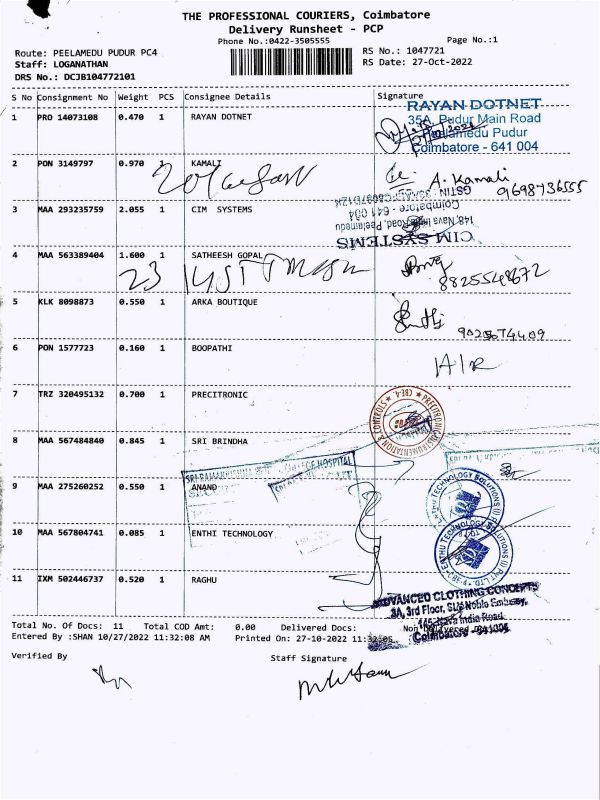 THE PROFESSIONAL COURIERS, Coimbatore
Delivery Runsheet - PCP
Phone No.:0422-3505555
Page No.:1
Route: PEELAMEDU PUDUR PC4
RS No.: 1047721
Staff: LOGANATHAN
RS Date: 27-Oct-2022
DRS No.: DCJB104772101
S No Consignment No Weight PCS Consignee Details Signature
1 PRO 14073108 0.470 1 RAYAN DOTNET
RAYAN DOTNET
35A, Pudur Main Road
Peelamedu Pudur
Coimbatore - 641 004
2 PON 3149797 0.970 1 KAMALI
A. Kamali
9698736555
3 MAA 293235759 2.055 1 CIM SYSTEMS
CIM SYSTEMS
148, Nava India Road, Peelamedu
Coimbatore - 641 004
4 MAA 563389404 1.600 1 SATHEESH GOPAL
23
8825548672
5 KLK 8098873 0.550 1 ARKA BOUTIQUE
6 PON 1577723 0.160 1 BOOPATHI
7 TRZ 320495132 0.700 1 PRECITRONIC
8 MAA 567484840 0.845 1 SRI BRINDHA
9 MAA 275260252 0.550 1 ANAND
ENTHU TECHNOLOGY SOLUTIONS (I) PVT LTD
10 MAA 567804741 0.085 1 ENTHI TECHNOLOGY
ENTHU TECHNOLOGY SOLUTIONS (I) PVT LTD
11 IXM 502446737 0.520 1 RAGHU
ADVANCED CLOTHING CONCEPTS
3A, 3rd Floor,
445, Nava India Road
Coimbatore - 641004
Total No. Of Docs: 11 Total COD Amt: 0.00 Delivered Docs: Non Delivered
Entered By :SHAN 10/27/2022 11:32:08 AM Printed On: 27-10-2022
Verified By
Staff Signature